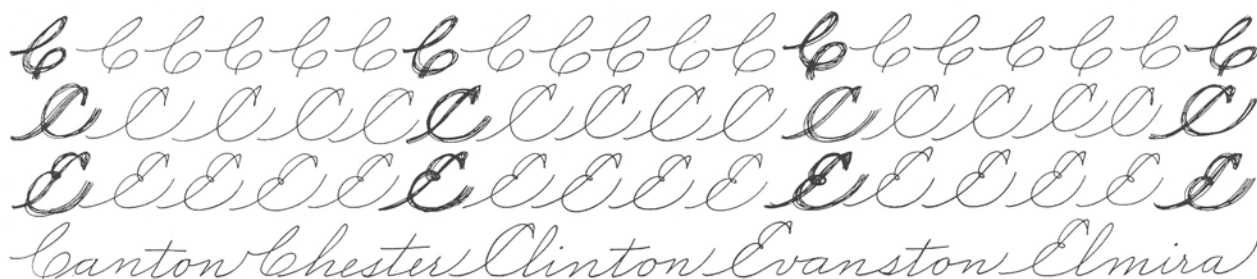 C C C C C C C C C C C C C C C C C C C
C C C C C C C C C C C C C C C C C
E E E E E E E E E E E E E E E E
Canton Chester Clinton Evanston Elmira